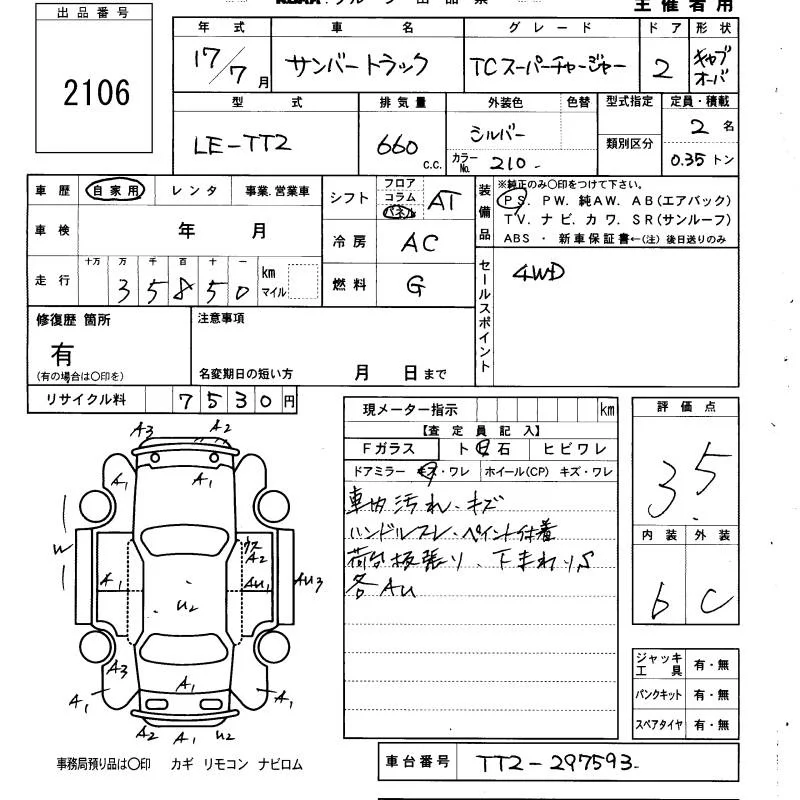 主催者用
出品番号
2106
年式 車名 グレード ドア 形状
17/7月 サンバートラック TCスーパーチャージャー 2 キャブオーバ
型式 排気量 外装色 色替 型式指定 定員・積載
LE-TT2 660 c.c. シルバー 類別区分 2名
カラーNo. 210- 0.35トン
車歴 自家用 レンタ 事業.営業車
車検 年 月
走行 十万 万 千 百 十 一
35850 km マイル
シフト フロア コラム パネル AT
冷房 AC
燃料 G
装備品 ※純正のみ〇印をつけて下さい。
PS. PW. 純AW. AB(エアバック)
TV. ナビ. カワ. SR(サンルーフ)
ABS ・ 新車保証書←(注) 後日送りのみ
セールスポイント 4WD
修復歴 箇所
有
(有の場合は〇印を)
注意事項
名変期日の短い方 月 日まで
リサイクル料 7530円
現メーター指示 km
【査定員記入】
Fガラス ト 石 ヒビワレ
ドアミラー キズ・ワレ ホイール(CP) キズ・ワレ
車内汚れ.キズ
ハンドルスレ.ペイント付着
荷台板張り、下まわりS
各AU
評価点
3.5
内装 外装
b C
A3 A2
A1 A1
W
ウス A2
A1 AU1 AU3
U2
A3
A1 A1 A1
A2 A1 U2
ジャッキ工具 有・無
パンクキット 有・無
スペアタイヤ 有・無
事務局預り品は〇印 カギ リモコン ナビロム
車台番号 TT2-297593-